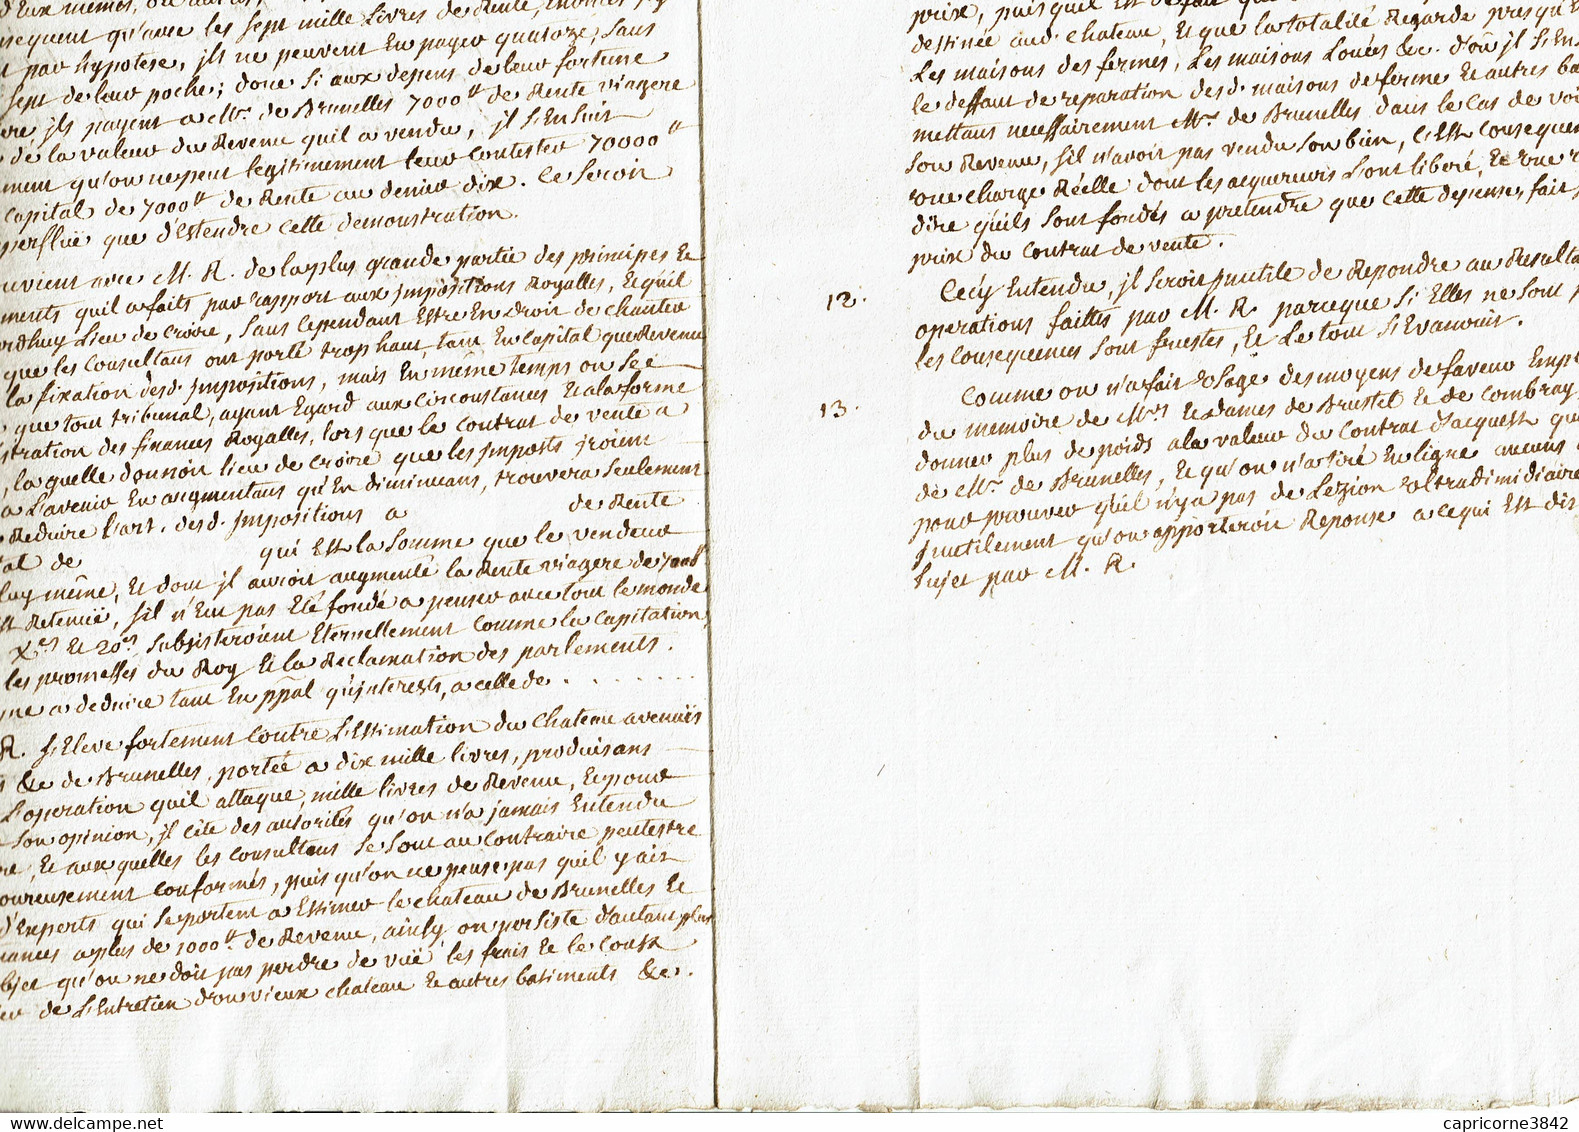 d'Eux memes, ou
sequent qu'avec les sept mille Livres de Rente,
par hypotese, jls ne peuvent En payer quatoze, Sans
sept de leur poche; donc Si aux depens de leur fortune
jls payent a Mr. de Brunelles 7000lt de Rente viagere
de la valeur du Revenu quil a vendu, jl S'Ensuit
ment qu'on ne peut legitimement leur Contester 70000lt
Capital de 7000lt de Rente au denier dix. Ce Seroit
perfluë que d'Estendre cette demonstration.
uvient avec M. R. de la plus grande partie des principes Et
ments quil a faits par rapport aux jmpositions Royalles, Et quil
ordhuy Lieu de Croire, Sans Cependant Estre En droit de chanter
que les Consultans ont porté trop haut, tant En Capital que Revenu
la fixation desd. jmpositions, mais En même temps on
que tout tribunal, ayant Egard aux Circonstances Et a la forme
stration des finances Royalles, lors que le contrat de vente a
, la quelle donnoit lieu de croire que les jmposts jroient
a L'avenir En augmentans qu'En diminuans, trouvera Seulement
Reduire l'art. desd. jmpositions a de Rente
al de qui Est la Somme que le vendeur
luy même, Et dont jl auroit augmenté la Rente viagere de 7000lt
Retenuë, Sil n'Eut pas Eté fondé a penser avec tout le monde
Xes Et 20es Subsisteroient Eternellement Comme la Capitation,
les promesses du Roy Et la Reclamation des parlements.
me a deduire tant En ppal qu'jnterests, a celle de . . . . . . .
R. S'Eleve fortement Contre L'Estimation du Chateau avenuës
&c de Brunelles, portée a dix mille livres, produisans
L'operation quil attaque, mille livres de Revenu, Et pour
Son opinion, jl cite des autorités qu'on n'a jamais Entendu
re, Et aux quelles les Consultans Se Sont au Contraire peutestre
oureusement conformés, puis qu'on ne pense pas quil y ait
d'Experts qui Se portent a Estimer le chateau de Brunelles Et
nances a plus de 1000lt. de Revenu, ainsy on persiste d'autant plus
bjet qu'on ne doit pas perdre de vuë les frais Et le Coust
de L'Entretien d'un vieux chateau Et autres batiments &c.
prix, puis quil Est de fait que
destinée aud. chateau, Et que la totalité Regarde presqu'E
Les maisons des fermes, Les maisons Louées &c. d'où jl S'En
le deffaut de reparation desd. maisons de ferme Et autres ba
mettans necessairement Mr. de Brunelles dans le Cas de voi
Son Revenu, Sil n'avoit pas vendu Son bien, C'Est Consequen
une charge Réelle dont les acquereurs S'ont liberé, Et que
dire quils Sont fondés a pretendre que cette depense, fait
prix du Contrat de vente.
12. Cecy Entendu, jl Seroit jnutile de Repondre au Resulta
operations faittes par M. R. parceque Si Elles ne Sont
les Consequences Sont frustes, Et Le tout S'Evanouit.
13. Comme on n'a fait Usage des moyens de faveur Empl
du memoire de Mrs Et dames de Brustel Et de Combray
donner plus de poids a la valeur du Contrat d'acquest
de Mr. de Brunelles, Et qu'on n'a tiré En ligne aucuns
pour prouver quil n'y a pas de Lezion Ultradimidiaire
jnutilement qu'on apporteroit Reponse a ce qui Est dit
Sujet par M. R.
capricorne3842